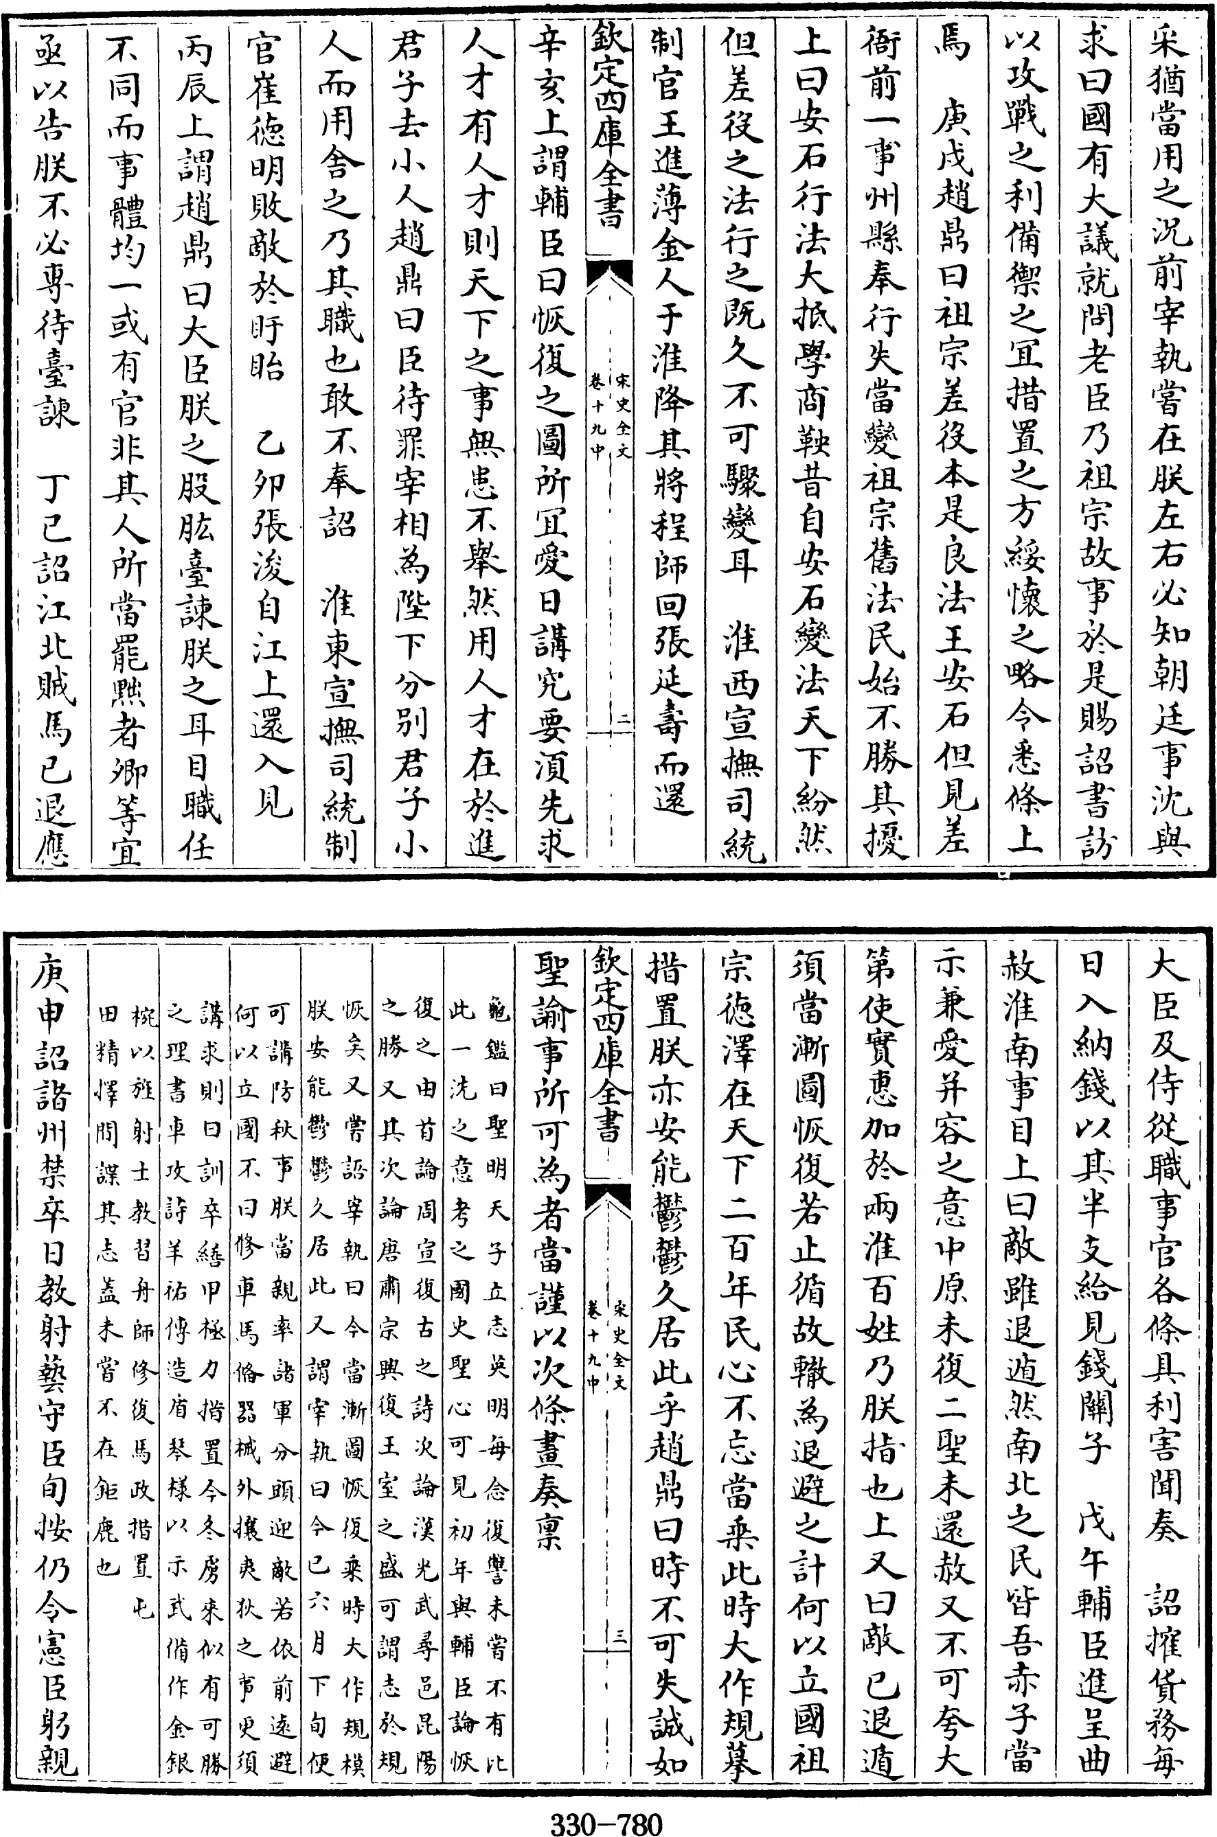 采猶當用之況前宰執嘗在朕左右必知朝廷事沈與
求曰國有大議就問老臣乃祖宗故事於是賜詔書訪
以攻戰之利備禦之宜措置之方綏懷之略令悉條上
焉　庚戌趙鼎曰祖宗差役本是良法王安石但見差
衙前一事州縣奉行失當變祖宗舊法民始不勝其擾
上曰安石行法大抵學商鞅昔自安石變法天下紛然
但差役之法行之既久不可驟變耳　淮西宣撫司統
制官王進薄金人于淮降其將程師回張延壽而還
欽定四庫全書
宋史全文
卷十九中
二
辛亥上謂輔臣曰恢復之圖所宜愛日講究要須先求
人才有人才則天下之事無患不舉然用人才在於進
君子去小人趙鼎曰臣待罪宰相為陛下分別君子小
人而用舍之乃其職也敢不奉詔　淮東宣撫司統制
官崔德明敗敵於盱眙　乙卯張浚自江上還入見
丙辰上謂趙鼎曰大臣朕之股肱臺諫朕之耳目職任
不同而事體均一或有官非其人所當罷黜者卿等宜
亟以告朕不必專待臺諫　丁巳詔江北賊馬已退應
大臣及侍從職事官各條具利害聞奏　詔搉貨務每
日入納錢以其半支給見錢關子　戊午輔臣進呈曲
赦淮南事目上曰敵雖退遁然南北之民皆吾赤子當
示兼愛并容之意中原未復二聖未還赦又不可夸大
第使實惠加於兩淮百姓乃朕指也上又曰敵已退遁
須當漸圖恢復若止循故轍為退避之計何以立國祖
宗德澤在天下二百年民心不忘當乘此時大作規摹
措置朕亦安能鬱鬱久居此乎趙鼎曰時不可失誠如
欽定四庫全書
宋史全文
卷十九中
三
聖諭事所可為者當謹以次條畫奏稟
龜鑑曰聖明天子立志英明每念復讐未嘗不有比
此一洗之意考之國史聖心可見初年與輔臣論恢
復之由首論周宣復古之詩次論漢光武尋邑昆陽
之勝又其次論唐肅宗興復王室之盛可謂志於規
恢矣又嘗語宰執曰今當漸圖恢復乘時大作規模
朕安能鬱鬱久居此又謂宰執曰今已六月下旬便
可講防秋事朕當親率諸軍分頭迎敵若依前遠避
何以立國不曰修車馬俻器械外攘夷狄之事更須
講求則曰訓卒繕甲極力措置今冬虜來似有可勝
之理書車攻詩羊祜傳造盾琴樣以示武俻作金銀
椀以旌射士教習舟師修復馬政措置屯
田精擇間諜其志蓋未嘗不在鉅鹿也
庚申詔諸州禁卒日教射藝守臣旬按仍令憲臣躬親
330-780